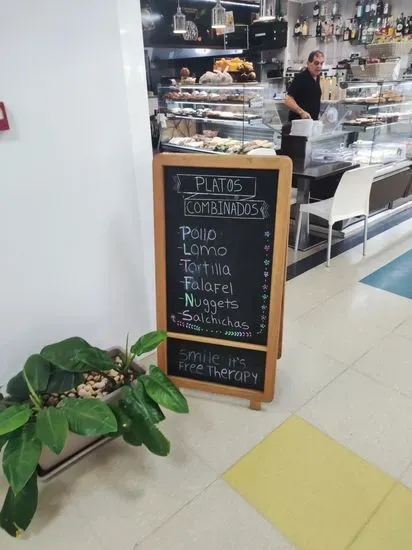 PLATOS
COMBINADOS
Pollo
-Lomo
-Tortilla
-Falafel
-Nuggets
-Salchichas
Smile it's
Free Therapy